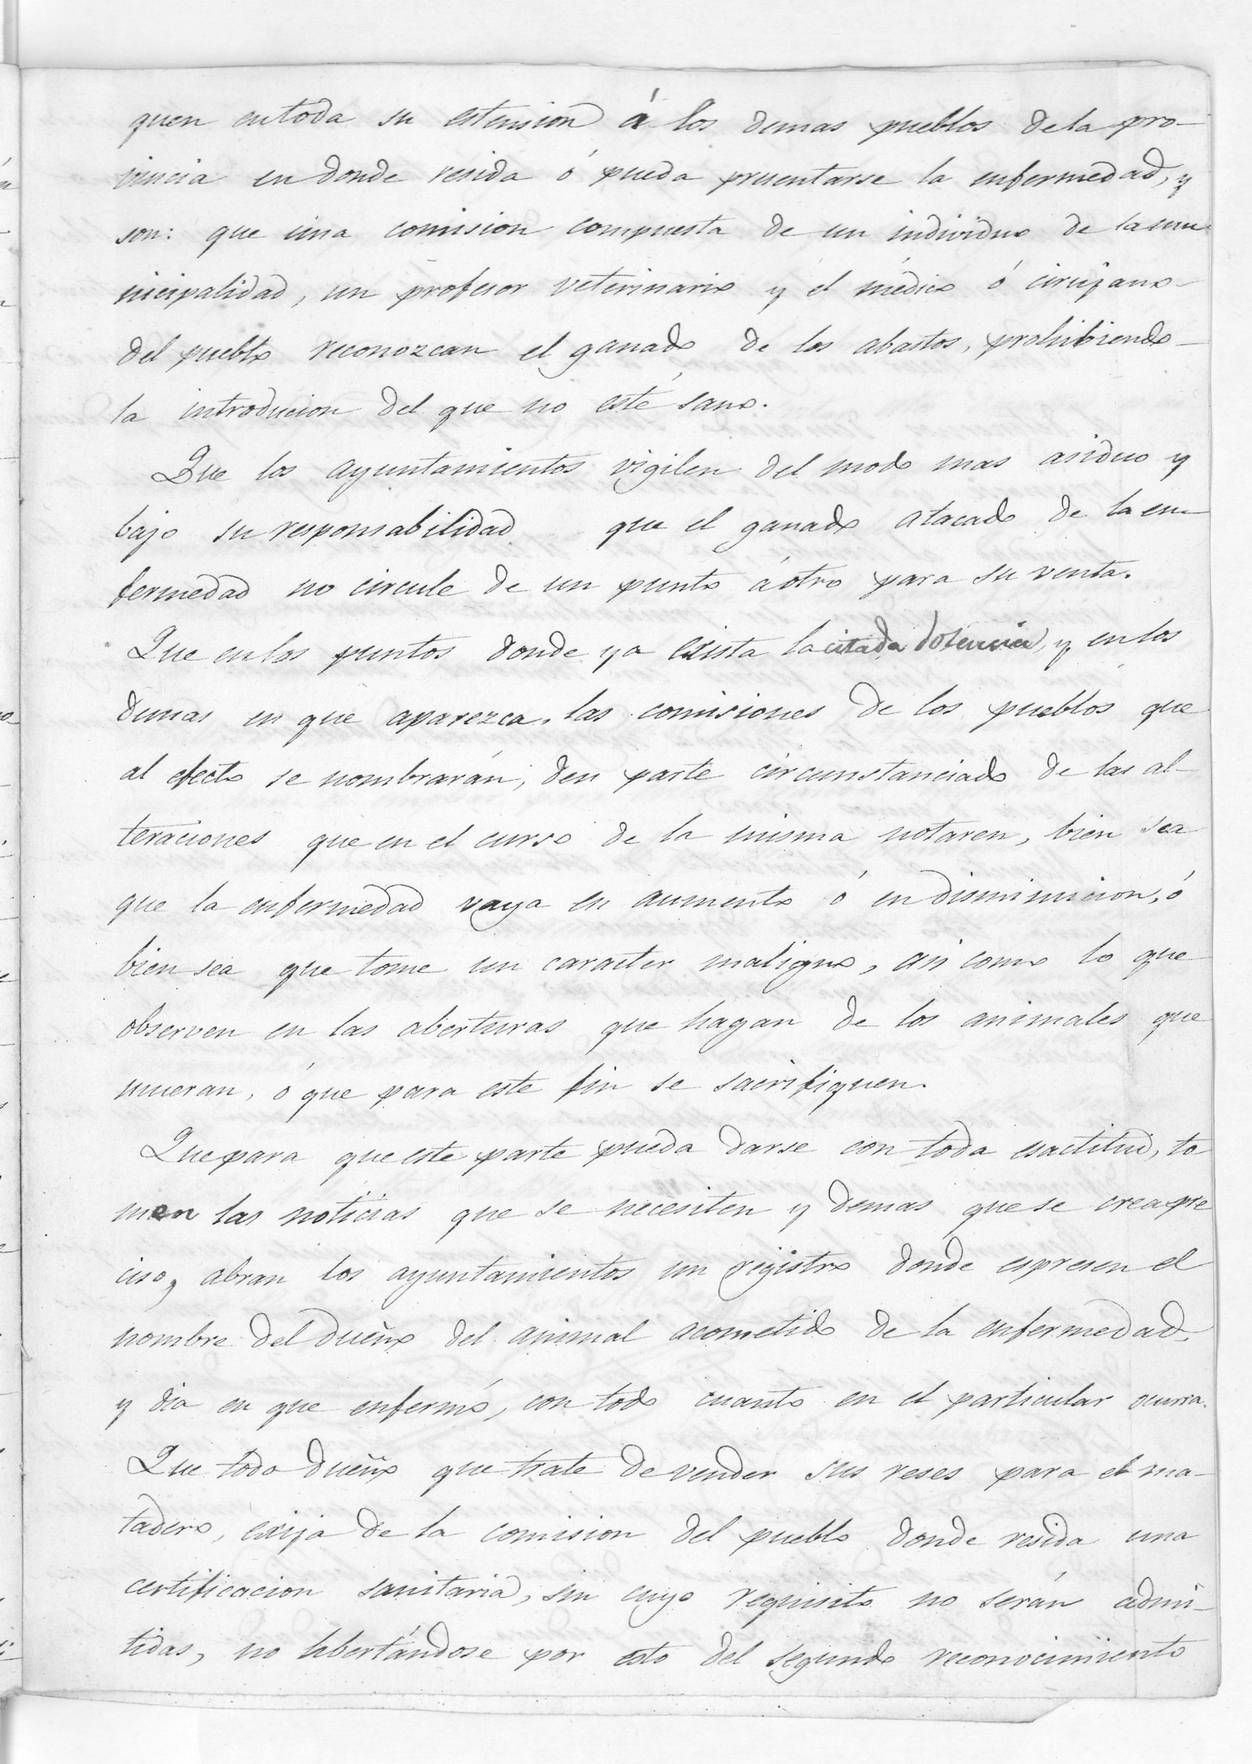 quen en toda su estension á los demas pueblos de la pro-
vincia en donde resida ó pueda presentarse la enfermedad, y
son: que una comision compuesta de un individuo de la mu
nicipalidad, un profesor veterinario y el médico ó cirujano
del pueblo reconozcan el ganado de los abastos, prohibiendo
la introducion del que no esté sano.
Que los ayuntamientos vigilen del modo mas asiduo y
bajo su responsabilidad que el ganado atacado de la en-
fermedad no circule de un punto á otro para su venta.
Que en los puntos donde ya exista la citada dolencia, y en los
demas en que aparezca, las comisiones de los pueblos que
al efecto se nombrarán, den parte circunstanciado de las al-
teraciones que en el curso de la misma notaren, bien sea
que la enfermedad vaya en aumento ó en disminucion, ó
bien sea que tome un caracter maligno, asi como lo que
observen en las aberturas que hagan de los animales que
mueran, ó que para este fin se sacrifiquen.
Que para que este parte pueda darse con toda esactitud, to
men las noticias que se necesiten y demas que se crea pre
ciso, abran los ayuntamientos un registro donde espresen el
nombre del dueño del animal acometido de la enfermedad,
y dia en que enfermó, con todo cuanto en el particular ocurra.
Que todo dueño que trate de vender sus reses para el ma-
tadero, exija de la comision del pueblo donde resida una
certificacion sanitaria, sin cuyo requisito no serán admi-
tidas, no libertándose por esto del segundo reconocimiento